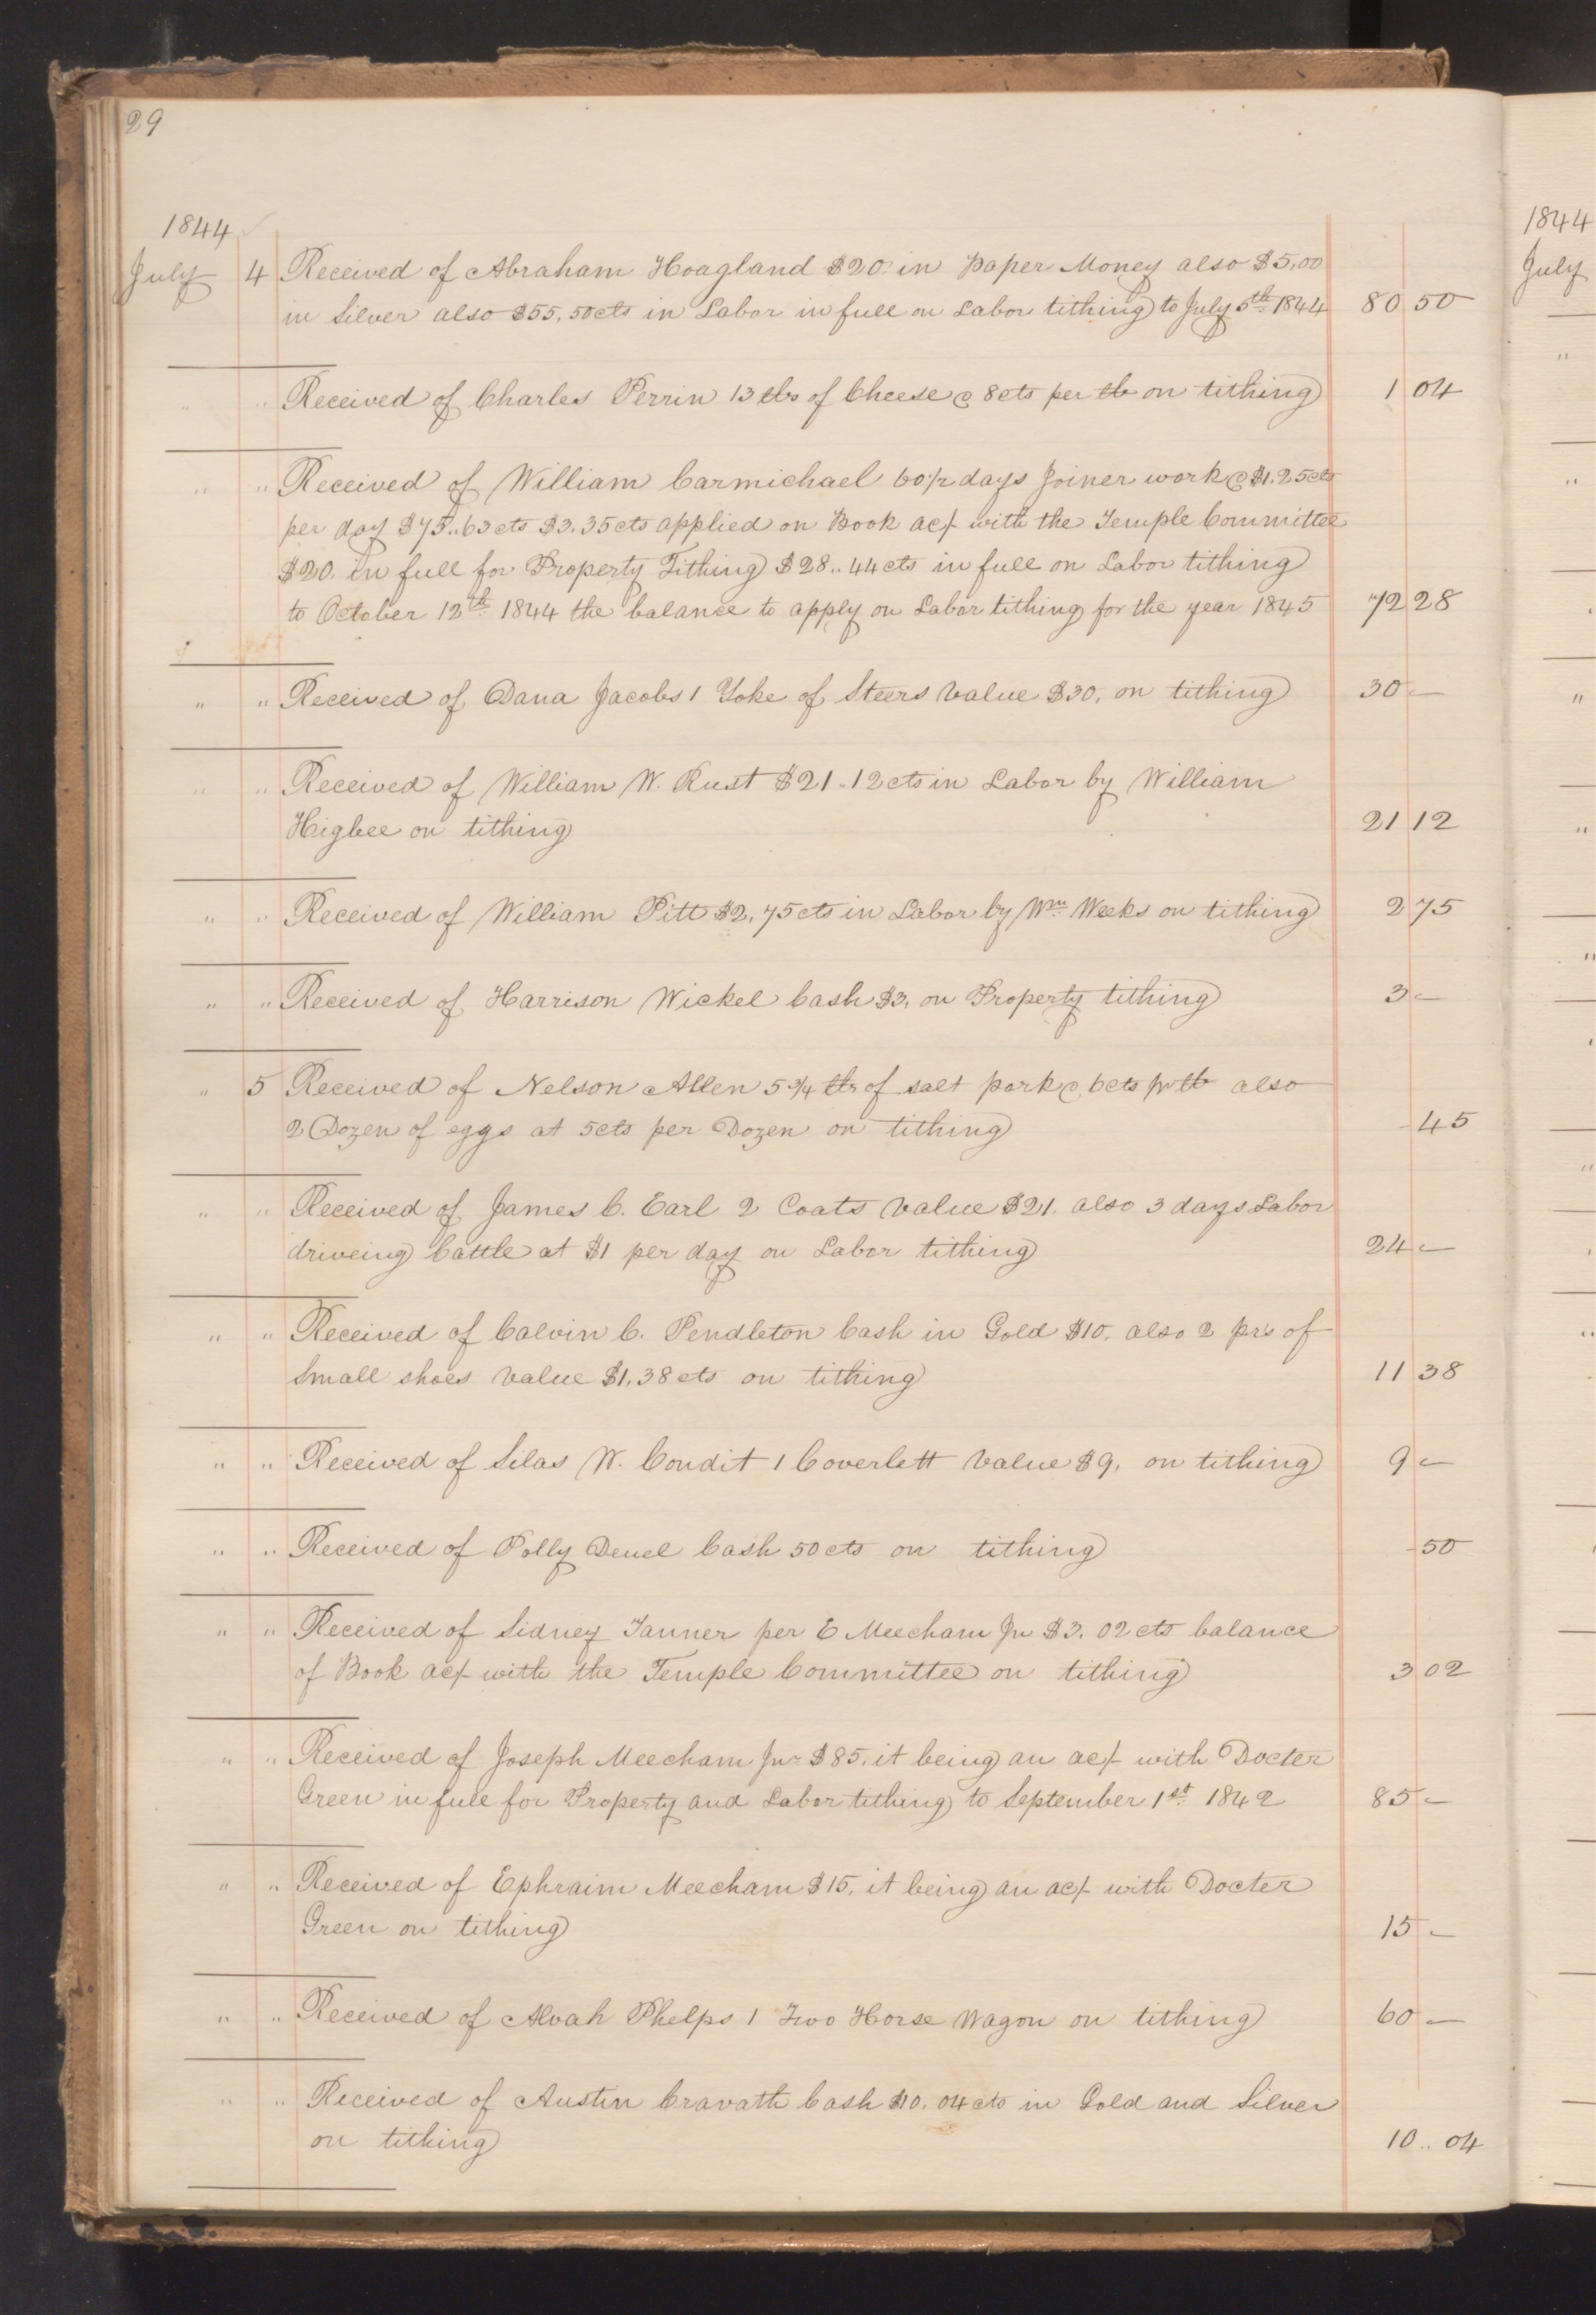 29
1844
July 4 Received of Abraham Hoagland $20. in Paper Money also $5,00
in Silver also $55,50cts in Labor in full on Labor tithing to July 5th 1844 80 50
" " Received of Charles Perrin 13 lbs of Cheese @ 8cts per lb on tithing 1 04
" " Received of William Carmichael 60 1/2 days Joiner work @ $1.25cts
per day $75..63cts $3.35cts applied on Book ac/- with the Temple Committee
$20. in full for Property Tithing $28..44cts in full on Labor tithing
to October 12th 1844 the balance to apply on Labor tithing for the year 1845 72 28
" " Received of Dana Jacobs 1 Yoke of Steers Value $30, on tithing 30 —
" " Received of William W. Rust $21..12cts in Labor by William
Higbee on tithing 21 12
" " Received of William Pitt $2,75cts in Labor by Wm Weeks on tithing 2 75
" " Received of Harrison Wickel Cash $3, on Property tithing 3 —
" 5 Received of Nelson Allen 5 3/4 lbs of salt pork @ 6cts pr lb also
2 Dozen of eggs at 5cts per Dozen on tithing - 45
" " Received of James C. Earl 2 Coats Value $21. also 3 days Labor
driveing Cattle at $1 per day on Labor tithing 24 —
" " Received of Calvin C. Pendleton Cash in Gold $10, also 2 prs of
Small shoes Value $1,38cts on tithing 11 38
" " Received of Silas W. Condit 1 Coverlett Value $9, on tithing 9 —
" " Received of Polly Deuel Cash 50cts on tithing - 50
" " Received of Sidney Tanner per E Meecham Jr $3. 02cts balance
of Book ac/- with the Temple Committee on tithing 3 02
" " Received of Joseph Meecham Jnr $85, it being an ac/- with Docter
Green in full for Property and Labor tithing to September 1st 1842 85 —
" " Received of Ephraim Meecham $15, it being an ac/- with Docter
Green on tithing 15 —
" " Received of Alvah Phelps 1 Two Horse Wagon on tithing 60 —
" " Received of Austin Cravath Cash $10. 04cts in Gold and Silver
on tithing 10 .. 04
1844
July